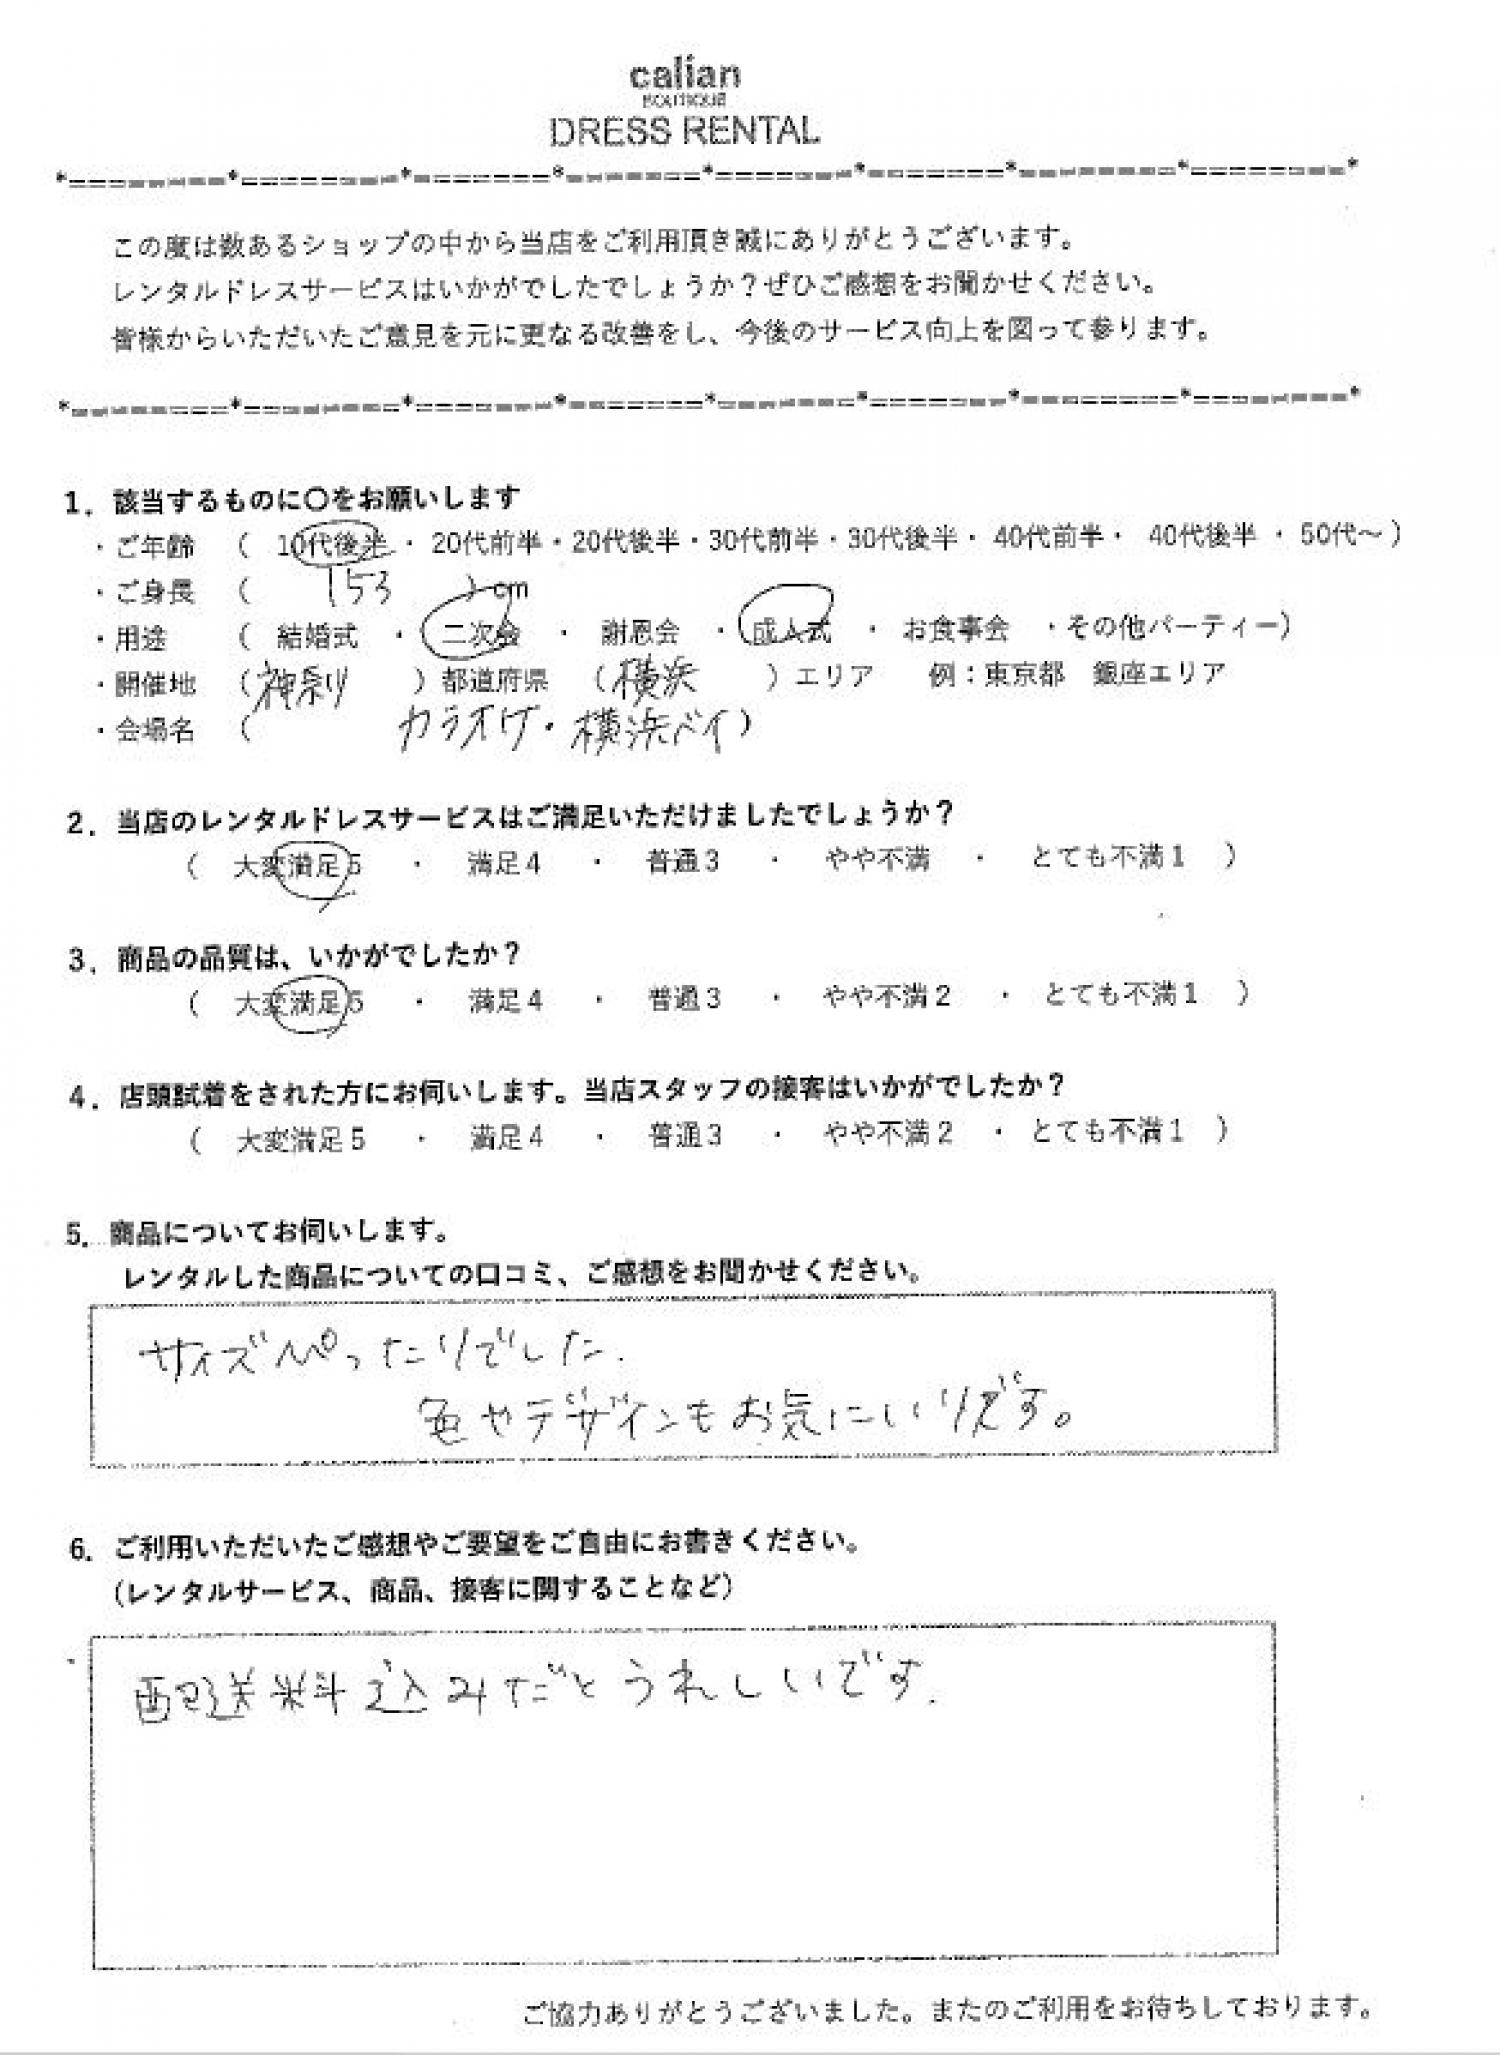 calian
BOUTIQUE
DRESS RENTAL
*=========*=========*========*========*========*========*=========*=========*
この度は数あるショップの中から当店をご利用頂き誠にありがとうございます。
レンタルドレスサービスはいかがでしたでしょうか？ぜひご感想をお聞かせください。
皆様からいただいたご意見を元に更なる改善をし、今後のサービス向上を図って参ります。
*=========*=========*========*========*========*========*=========*=========*
1．該当するものに〇をお願いします
・ご年齢 （ 10代後半 ・ 20代前半・20代後半・30代前半・30代後半・ 40代前半・ 40代後半 ・ 50代～ ）
・ご身長 （ 153 ）cm
・用途 （ 結婚式 ・ 二次会 ・ 謝恩会 ・ 成人式 ・ お食事会 ・その他パーティー）
・開催地 （ 神奈川 ）都道府県 （ 横浜 ）エリア 例：東京都 銀座エリア
・会場名 （ カラオケ・横浜ベイ ）
2．当店のレンタルドレスサービスはご満足いただけましたでしょうか？
（ 大変満足5 ・ 満足4 ・ 普通3 ・ やや不満 ・ とても不満1 ）
3．商品の品質は、いかがでしたか？
（ 大変満足5 ・ 満足4 ・ 普通3 ・ やや不満2 ・ とても不満1 ）
4．店頭試着をされた方にお伺いします。当店スタッフの接客はいかがでしたか？
（ 大変満足5 ・ 満足4 ・ 普通3 ・ やや不満2 ・ とても不満1 ）
5．商品についてお伺いします。
レンタルした商品についての口コミ、ご感想をお聞かせください。
サイズぴったりでした.
色やデザインもお気にいりです。
6．ご利用いただいたご感想やご要望をご自由にお書きください。
（レンタルサービス、商品、接客に関することなど）
配送料込みだとうれしいです.
ご協力ありがとうございました。またのご利用をお待ちしております。